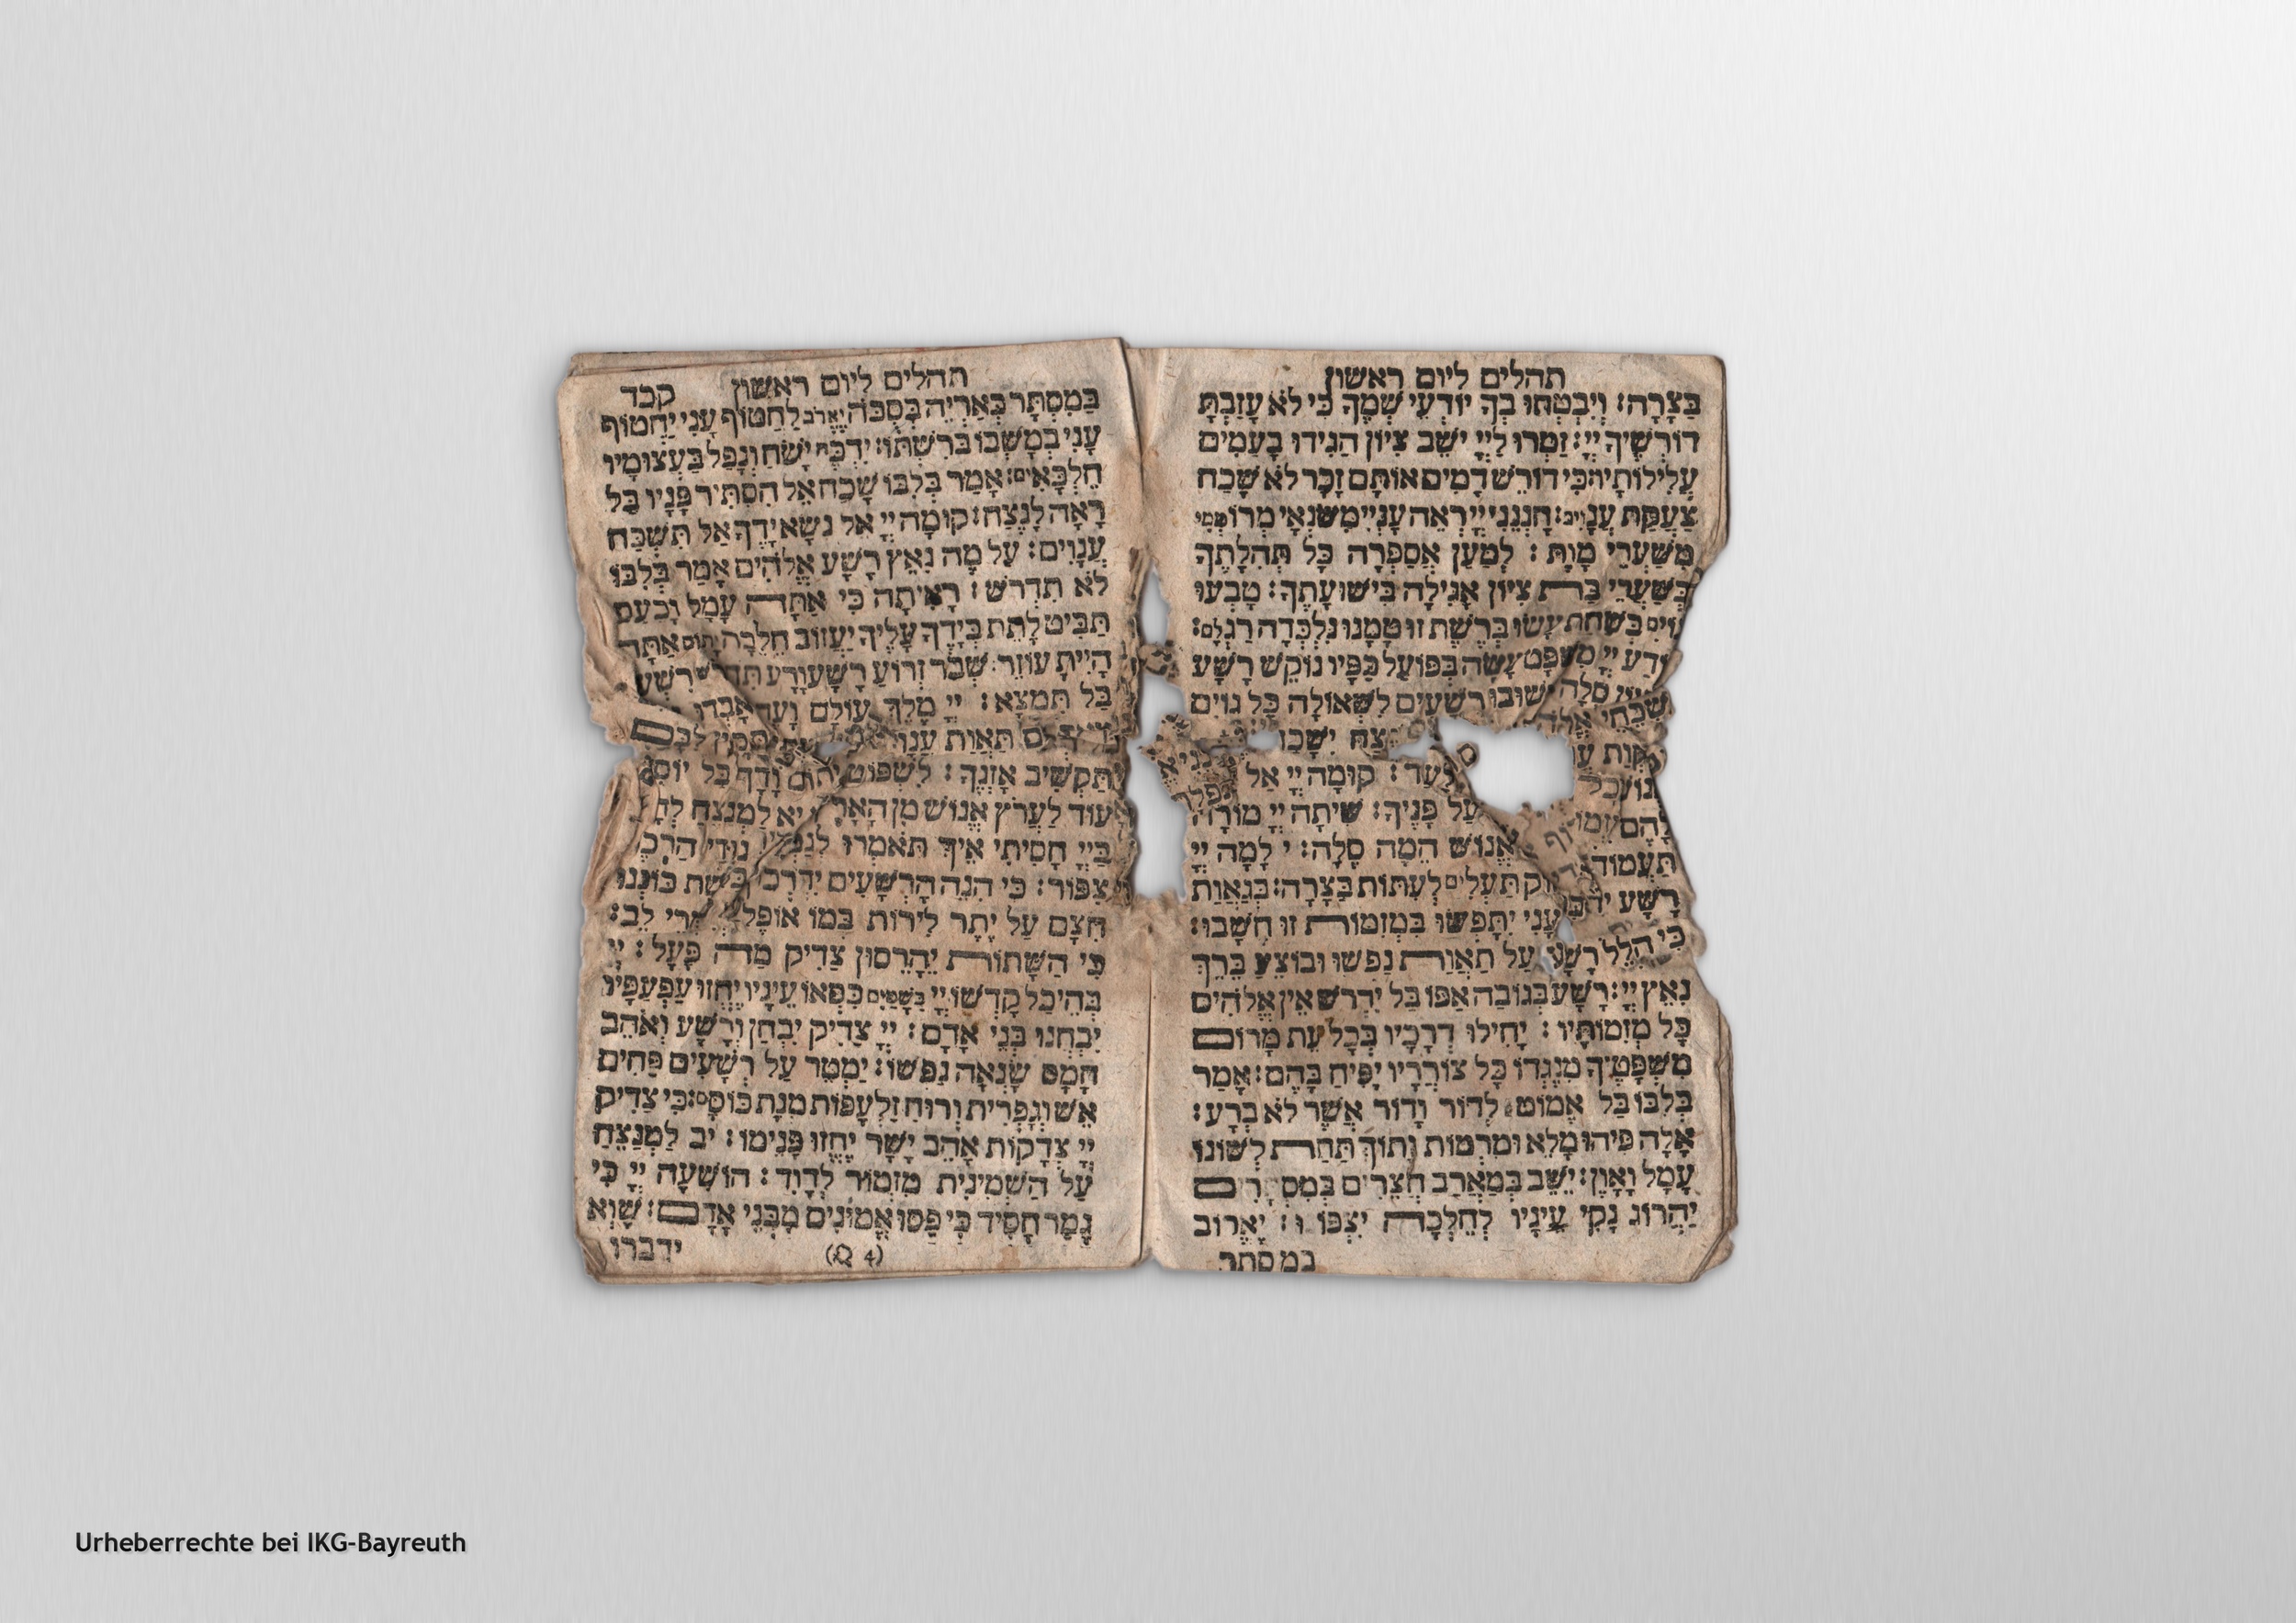 תהלים ליום ראשון
בַּצָּרָה: וְיִבְטְחוּ בְךָ יוֹדְעֵי שְׁמֶךָ כִּי לֹא עָזַבְתָּ
דוֹרְשֶׁיךָ יְיָ: זַמְּרוּ לַיְיָ יֹשֵׁב צִיּוֹן הַגִּידוּ בָעַמִּים
עֲלִילוֹתָיו: כִּי דוֹרֵשׁ דָּמִים אוֹתָם זָכָר לֹא שָׁכַח
צַעֲקַת חָנְנֵנִי יְיָ רְאֵה עָנְיִי מִשֹּׂנְאָי מְרוֹמְמִי
מִשַּׁעֲרֵי מָוֶת: לְמַעַן אֲסַפְּרָה כָּל תְּהִלָּתֶךָ
בְּשַׁעֲרֵי בַת צִיּוֹן אָגִילָה בִּישׁוּעָתֶךָ: טָבְעוּ
בְּשַׁחַת עָשׂוּ בְּרֶשֶׁת זוּ טָמָנוּ נִלְכְּדָה רַגְלָם:
יְיָ מִשְׁפָּט עָשָׂה בְּפוֹעַל כַּפָּיו נוֹקֵשׁ רָשָׁע
סֶלָה יָשׁוּבוּ רְשָׁעִים לִשְׁאוֹלָה כָּל גּוֹיִם
שְׁכֵחֵי יִשָּׁכַח
קוּמָה יְיָ אַל
עַל פָּנֶיךָ: שִׁיתָה יְיָ מוֹרָה
לָהֶם אֱנוֹשׁ הֵמָּה סֶלָה: י לָמָה יְיָ
תַּעֲמוֹד תַּעְלִים לְעִתּוֹת בַּצָּרָה: בְּגַאֲוַת
רָשָׁע עָנִי יִתָּפְשׂוּ בִּמְזִמּוֹת זוּ חָשָׁבוּ:
כִּי הִלֵּל רָשָׁע עַל תַּאֲוַת נַפְשׁוֹ וּבוֹצֵעַ בֵּרֵךְ
נִאֵץ יְיָ: רָשָׁע כְּגוֹבַהּ אַפּוֹ בַּל יִדְרֹשׁ אֵין אֱלֹהִים
כָּל מְזִמּוֹתָיו: יָחִילוּ דְרָכָיו בְּכָל עֵת מָרוֹם
מִשְׁפָּטֶיךָ מִנֶּגְדּוֹ כָּל צוֹרְרָיו יָפִיחַ בָּהֶם: אָמַר
בְּלִבּוֹ בַּל אֶמּוֹט לְדוֹר וָדוֹר אֲשֶׁר לֹא בְרָע:
אָלָה פִּיהוּ מָלֵא וּמִרְמוֹת וָתוֹךְ תַּחַת לְשׁוֹנוֹ
עָמָל וָאָוֶן: יֵשֵׁב בְּמַאֲרַב חֲצֵרִים
יַהֲרוֹג נָקִי עֵינָיו לְחֵלְכָה יִצְפּוֹנוּ: יֶאֱרוֹב
במסתר
תהלים ליום ראשון קכד
בַּמִּסְתָּר כְּאַרְיֵה בְּסֻכֹּה יֶאֱרֹב לַחֲטוֹף עָנִי יַחְטוֹף
עָנִי בְּמָשְׁכוֹ בְרִשְׁתּוֹ: יִדְכֶּה יָשֹׁחַ וְנָפַל בַּעֲצוּמָיו
חֵלְכָּאִים: אָמַר בְּלִבּוֹ שָׁכַח אֵל הִסְתִּיר פָּנָיו בַּל
רָאָה לָנֶצַח: קוּמָה יְיָ אֵל נְשָׂא יָדֶךָ אַל תִּשְׁכַּח
עֲנָוִים: עַל מֶה נִאֵץ רָשָׁע אֱלֹהִים אָמַר בְּלִבּוֹ
לֹא תִדְרֹשׁ: רָאִיתָה כִּי אַתָּה עָמָל וָכַעַס
תַּבִּיט לָתֵת בְּיָדֶךָ עָלֶיךָ יַעֲזוֹב חֵלֵכָה יָתוֹם אַתָּה
הָיִיתָ עוֹזֵר: שְׁבֹר זְרוֹעַ רָשָׁע וָרָע רִשְׁעוֹ
בַל תִּמְצָא: יְיָ מֶלֶךְ עוֹלָם וָעֶד אָבְדוּ
תַּאֲוַת לִבָּם
תַּקְשִׁיב אָזְנֶךָ: לִשְׁפּוֹט יָתוֹם וָדָךְ בַּל
עוֹד לַעֲרֹץ אֱנוֹשׁ מִן הָאָרֶץ: יא לַמְנַצֵּחַ
בַּיְיָ חָסִיתִי אֵיךְ תֹּאמְרוּ נוּדִי
צִפּוֹר: כִּי הִנֵּה הָרְשָׁעִים יִדְרְכוּן קֶשֶׁת כּוֹנְנוּ
חִצָּם עַל יֶתֶר לִירוֹת בְּמוֹ אוֹפֶל לֵב:
כִּי הַשָּׁתוֹת יֵהָרֵסוּן צַדִּיק מַה פָּעָל: יְיָ
בְּהֵיכַל קָדְשׁוֹ יְיָ בַּשָּׁמַיִם כִּסְאוֹ עֵינָיו יֶחֱזוּ עַפְעַפָּיו
יִבְחֲנוּ בְּנֵי אָדָם: יְיָ צַדִּיק יִבְחָן וְרָשָׁע וְאֹהֵב
חָמָס שָׂנְאָה נַפְשׁוֹ: יַמְטֵר עַל רְשָׁעִים פַּחִים
אֵשׁ וְגָפְרִית וְרוּחַ זִלְעָפוֹת מְנָת כּוֹסָם: כִּי צַדִּיק
יְיָ צְדָקוֹת אָהֵב יָשָׁר יֶחֱזוּ פָנֵימוֹ: יב לַמְנַצֵּחַ
עַל הַשְּׁמִינִית מִזְמוֹר לְדָוִד: הוֹשִׁעָה יְיָ כִּי
גָמַר חָסִיד כִּי פַסּוּ אֱמוּנִים מִבְּנֵי אָדָם: שָׁוְא
ידברו (Q 4)
Urheberrechte bei IKG-Bayreuth